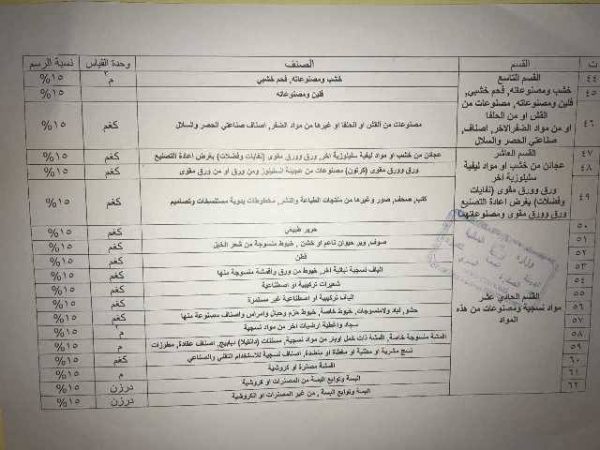 ت القسم الصنف وحدة القياس نسبة الرسم
٤٤ القسم التاسع خشب ومصنوعاته, فحم خشبي م٣ ١٥%
٤٥ خشب ومصنوعاته, فحم خشبي, فلين ومصنوعاته ١٥%
فلين ومصنوعاته, مصنوعات من
القش او من الحلفا
٤٦ او من مواد الضفر الاخر, اصناف مصنوعات من القش او الحلفا او غيرها من مواد الضفر, اصناف صناعتي الحصر والسلال كغم ١٥%
صناعتي الحصر والسلال
٤٧ القسم العاشر عجائن من خشب او مواد ليفية سليلوزية اخر ورق وورق مقوى (نفايات وفضلات) بغرض اعادة التصنيع كغم ١٥%
٤٨ عجائن من خشب او مواد ليفية ورق وورق مقوى (كرتون) مصنوعات من عجينة السليلوز ومن ورق او من ورق مقوى كغم ١٥%
سليلوزية اخر
٤٩ ورق وورق مقوى (نفايات كتب, صحف, صور وغيرها من منتجات الطباعة مخطوطات يدوية مستنسخات وتصاميم كغم ١٥%
وفضلات) بغرض اعادة التصنيع
ورق وورق مقوى ومصنوعاتهما
٥٠ حرير طبيعي كغم ١٥%
٥١ صوف, وبر حيوان ناعم او خشن, خيوط منسوجة من شعر الخيل كغم ١٥%
٥٢ قطن كغم ١٥%
٥٣ الياف نسجية نباتية اخر, خيوط من ورق واقمشة منسوجة منها كغم ١٥%
٥٤ شعيرات تركيبية او اصطناعية كغم ١٥%
٥٥ القسم الحادي عشر الياف تركيبية او اصطناعية غير مستمرة كغم ١٥%
٥٦ مواد نسجية ومصنوعات من هذه حشو, لباد ولامنسوجات, خيوط خاصة, خيوط حزم وحبال وامراس واصناف مصنوعة منها كغم ١٥%
٥٧ المواد سجاد واغطية ارضيات اخر من مواد نسجية م ١٥%
٥٨ اقمشة منسوجة خاصة, اقمشة ذات خمل اوبر من مواد نسجية, مسننات (دانتيلا) ديابيج, اصناف عقادة, مطرزات م ١٥%
٥٩ نسج مشربة او مطلية او مغطاة او منضدة, اصناف نسجية للاستخدام التقني والصناعي كغم ١٥%
٦٠ اقمشة مصنرة او كروشية م ١٥%
٦١ البسة وتوابع البسة من المصنرات او كروشية درزن ١٥%
٦٢ البسة وتوابع البسة, من غير المصنرات او الكروشية درزن ١٥%